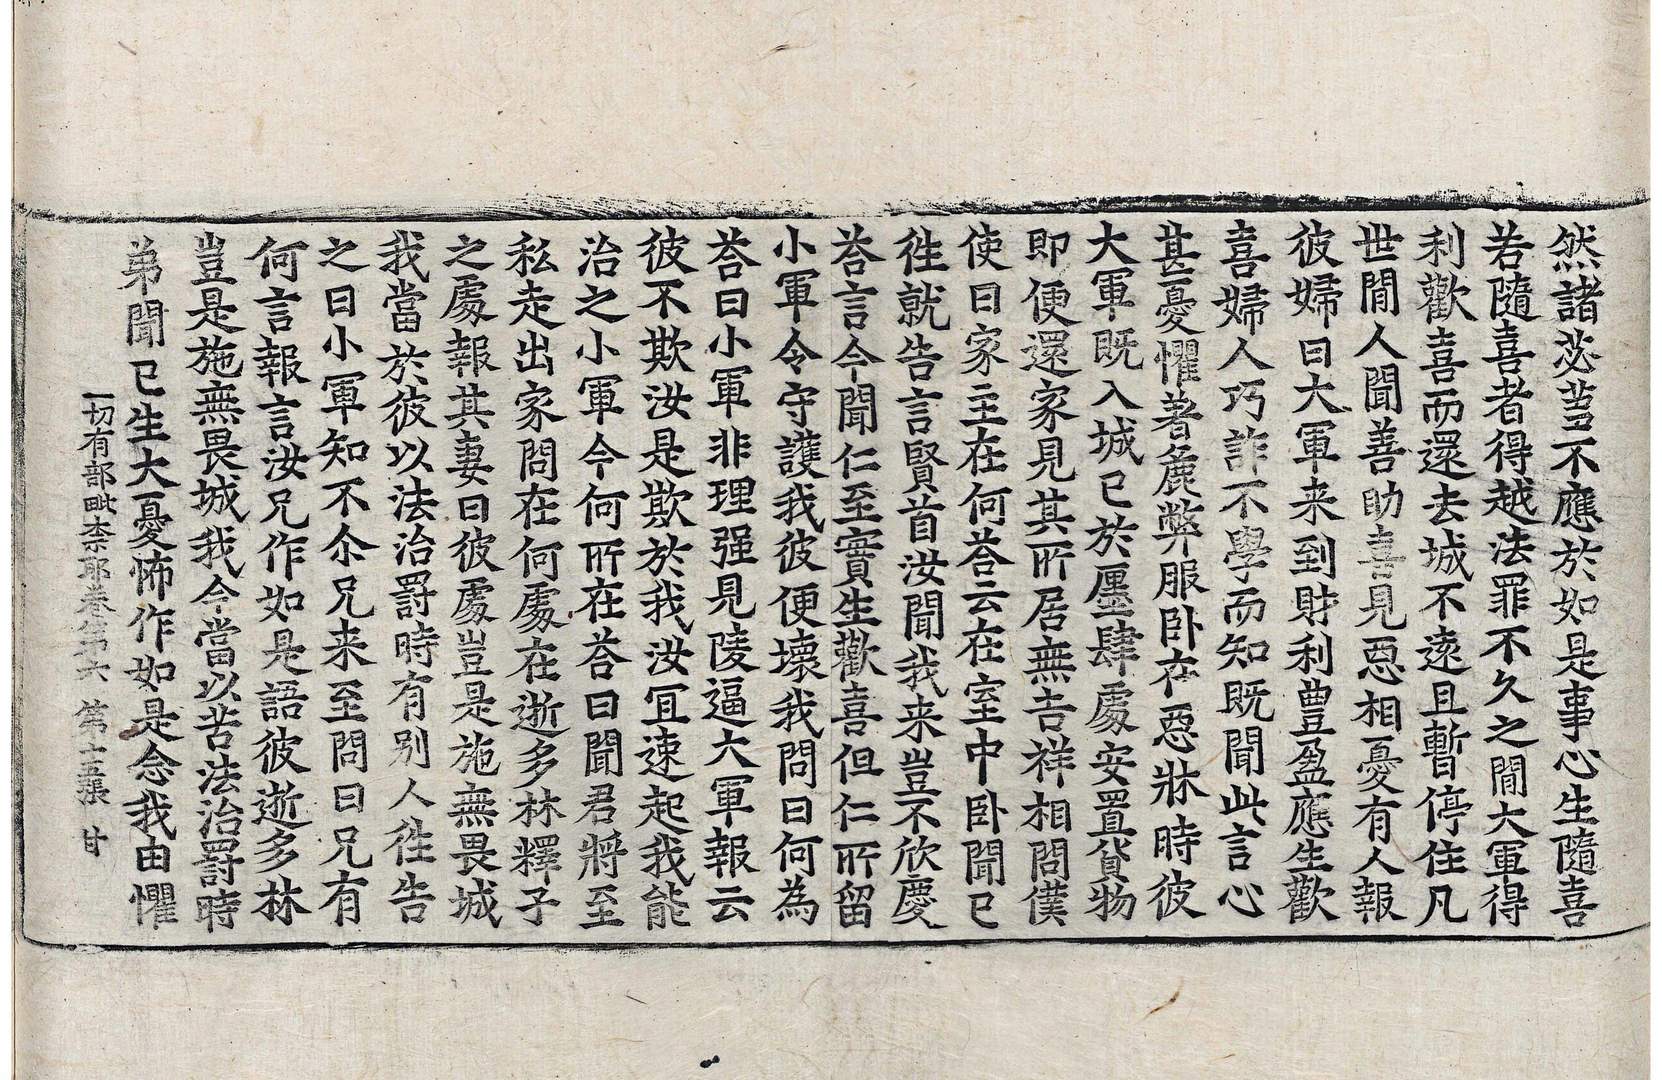 然諸苾芻不應於如是事心生隨喜
若隨喜者得越法罪不久之間大軍得
利歡喜而還去城不遠且暫停住凡
世間人聞善助喜見惡相憂有人報
彼婦曰大軍来到財利豊盈應生歡
喜婦人巧詐不學而知既聞此言心
甚憂懼著麁弊服卧在惡牀時彼
大軍既入城已於㕓肆處安置貨物
即便還家見其所居無吉祥相問僕
使曰家主在何荅云在室中卧聞已
徃就告言賢首汝聞我来豈不欣慶
荅言今聞仁至實生歡喜但仁所留
小軍令守護我彼便壞我問曰何為
荅曰小軍非理强見陵逼大軍報云
彼不欺汝是欺於我汝冝速起我能
治之小軍今何所在荅曰聞君將至
私走出家問在何處在逝多林釋子
之處報其妻曰彼處豈是施無畏城
我當於彼以法治罸時有別人徃告
之曰小軍知不尒兄来至問曰兄有
何言報言汝兄作如是語彼逝多林
豈是施無畏城我今當以苦法治罸時
弟聞已生大憂怖作如是念我由懼
一切有部毗柰耶卷第六 第十五張 甘